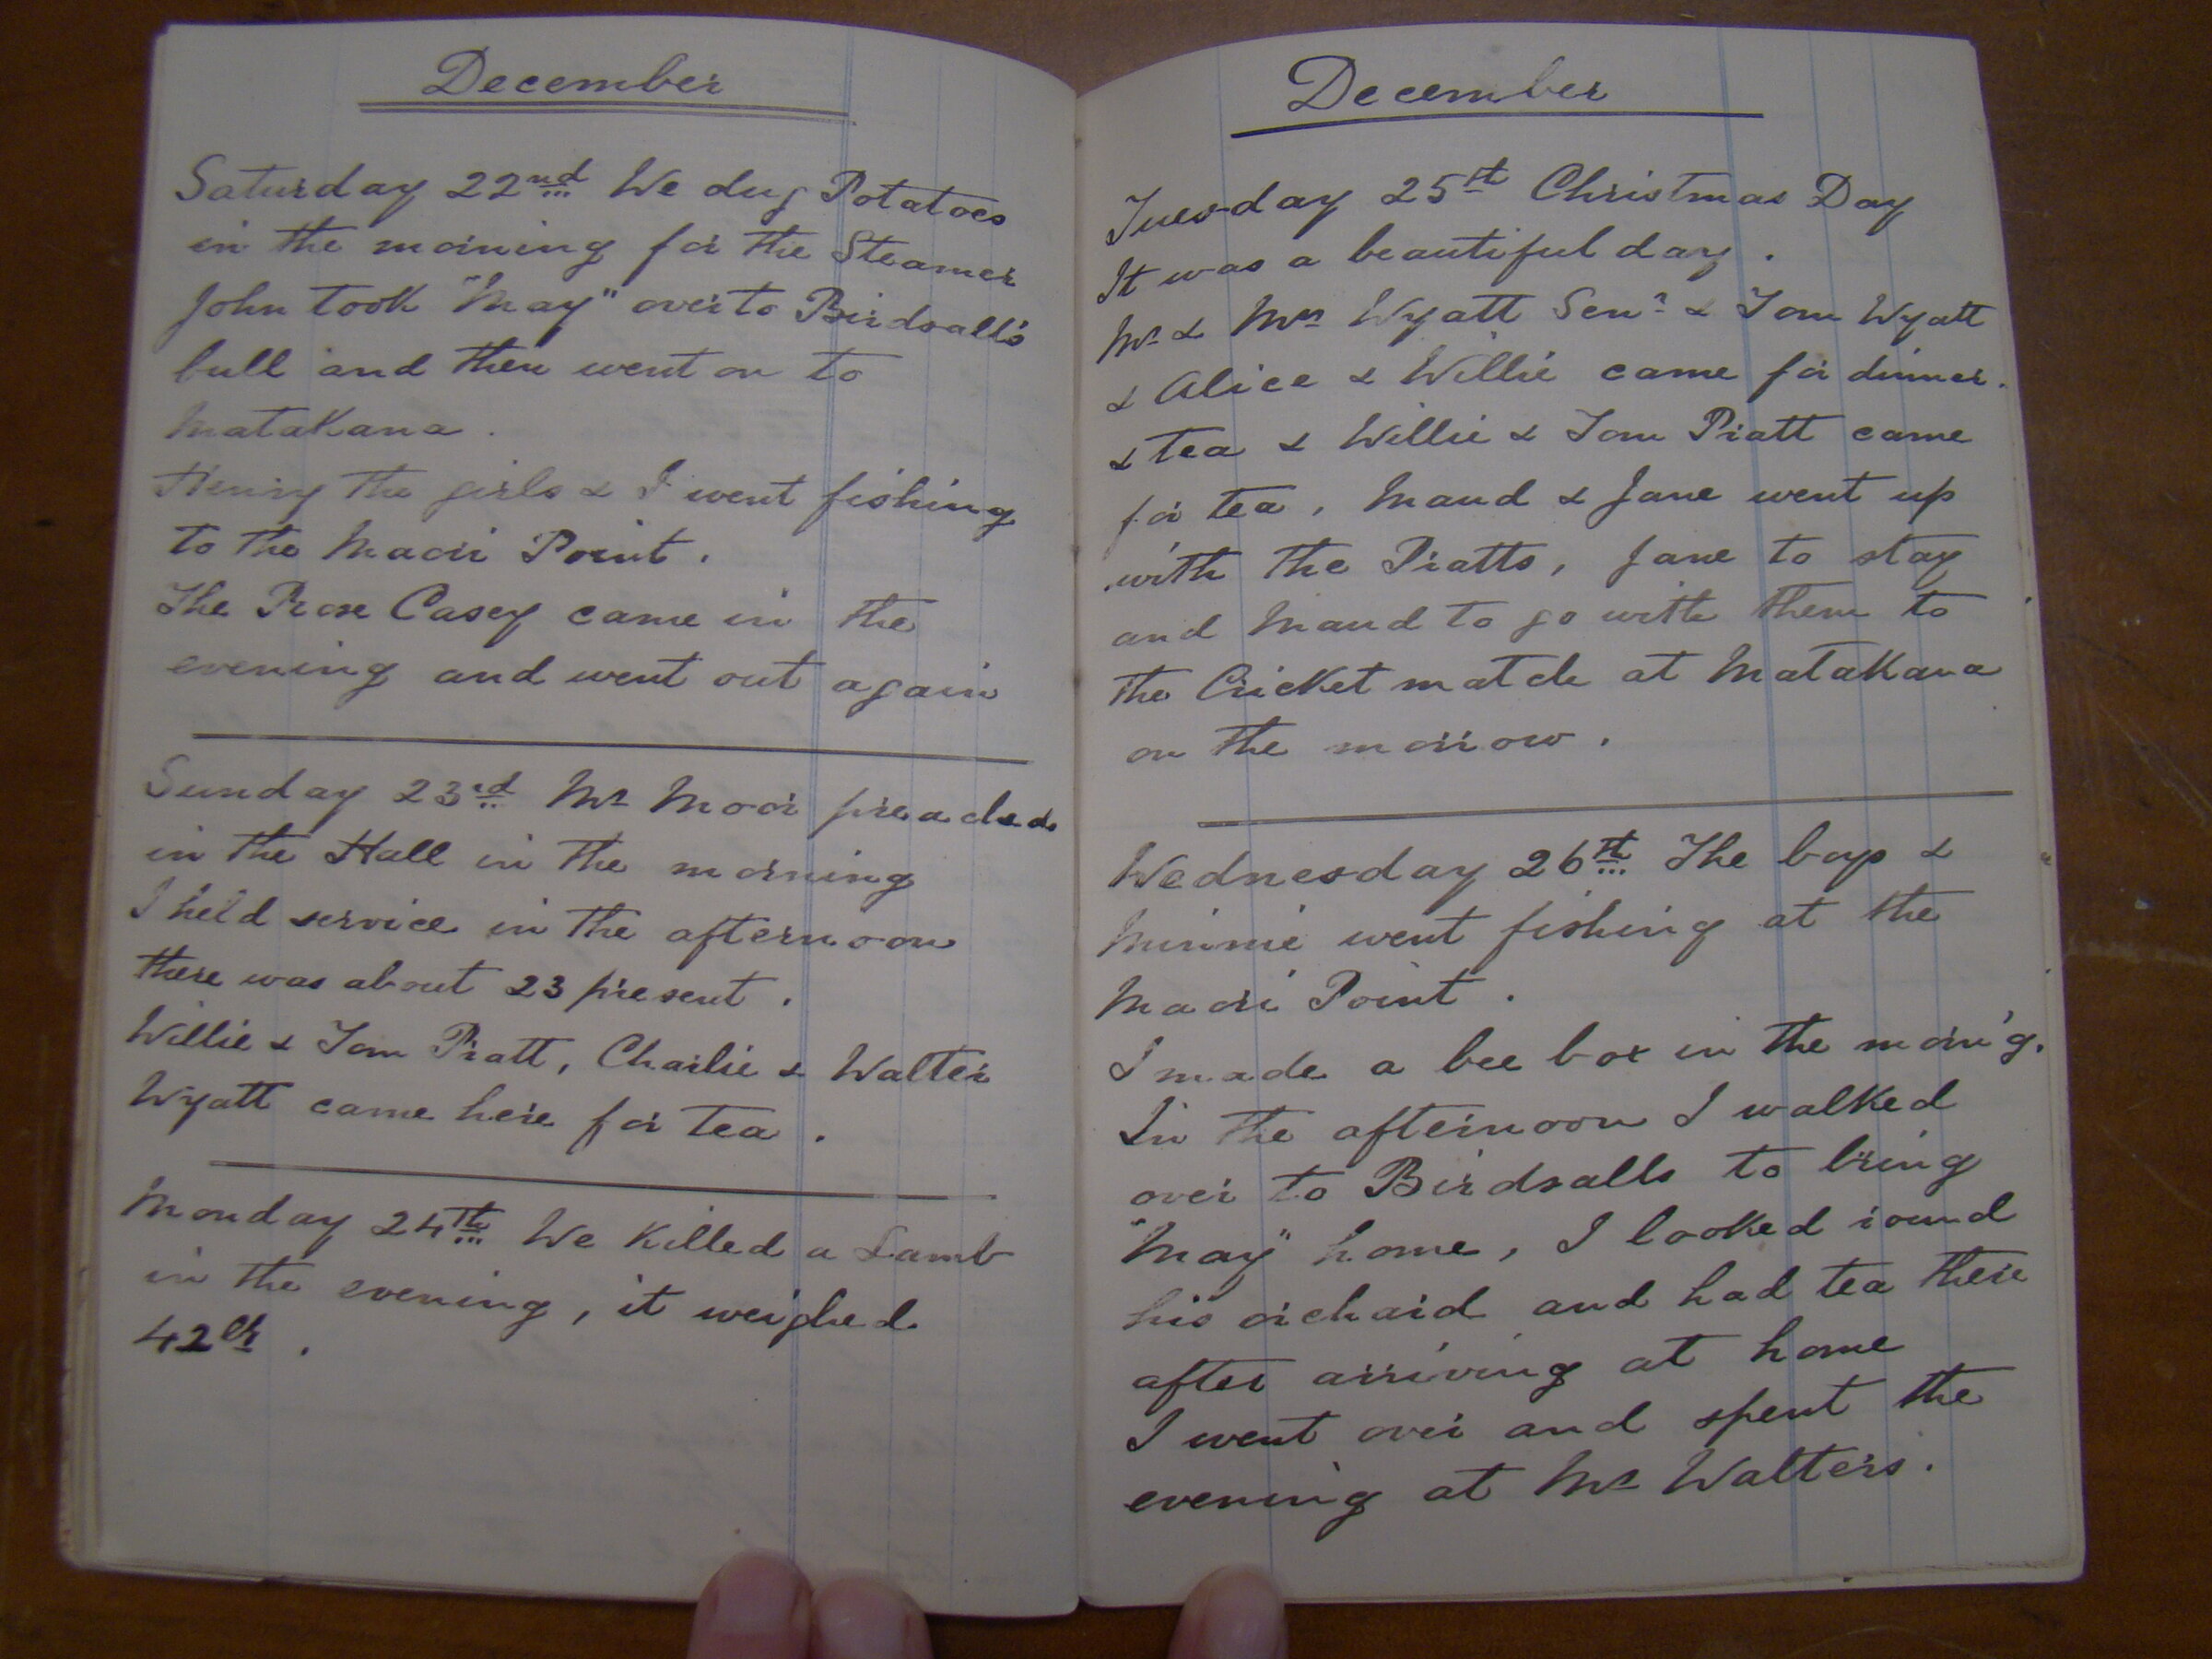 December
Saturday 22nd We dug Potatoes
in the morning for the Steamer
John took "May" over to Birdsall's
bull and then went on to
Matakana.
Henry the girls & I went fishing
to the Maori Point.
The Rose Casey came in the
evening and went out again
Sunday 23rd Mr Moor preached
in the Hall in the morning
I held service in the afternoon
there was about 23 present.
Willie & Tom Pratt, Charlie & Walter
Wyatt came here for tea.
Monday 24th We Killed a Lamb
in the evening, it weighed
42lb.
December
Tuesday 25th Christmas Day
It was a beautiful day.
Mr & Mrs Wyatt Senr & Tom Wyatt
& Alice & Willie came for dinner.
& tea & Willie & Tom Pratt came
for tea, Maud & Jane went up
with the Pratts, Jane to stay
and Maud to go with them to
the Cricket match at Matakana
on the morrow.
Wednesday 26th The boys &
Minnie went fishing at the
Maori Point.
I made a bee box in the morn'g.
In the afternoon I walked
over to Birdsalls to bring
"May" home, I looked round
his orchard and had tea there
after arriving at home
I went over and spent the
evening at Mr Walters.